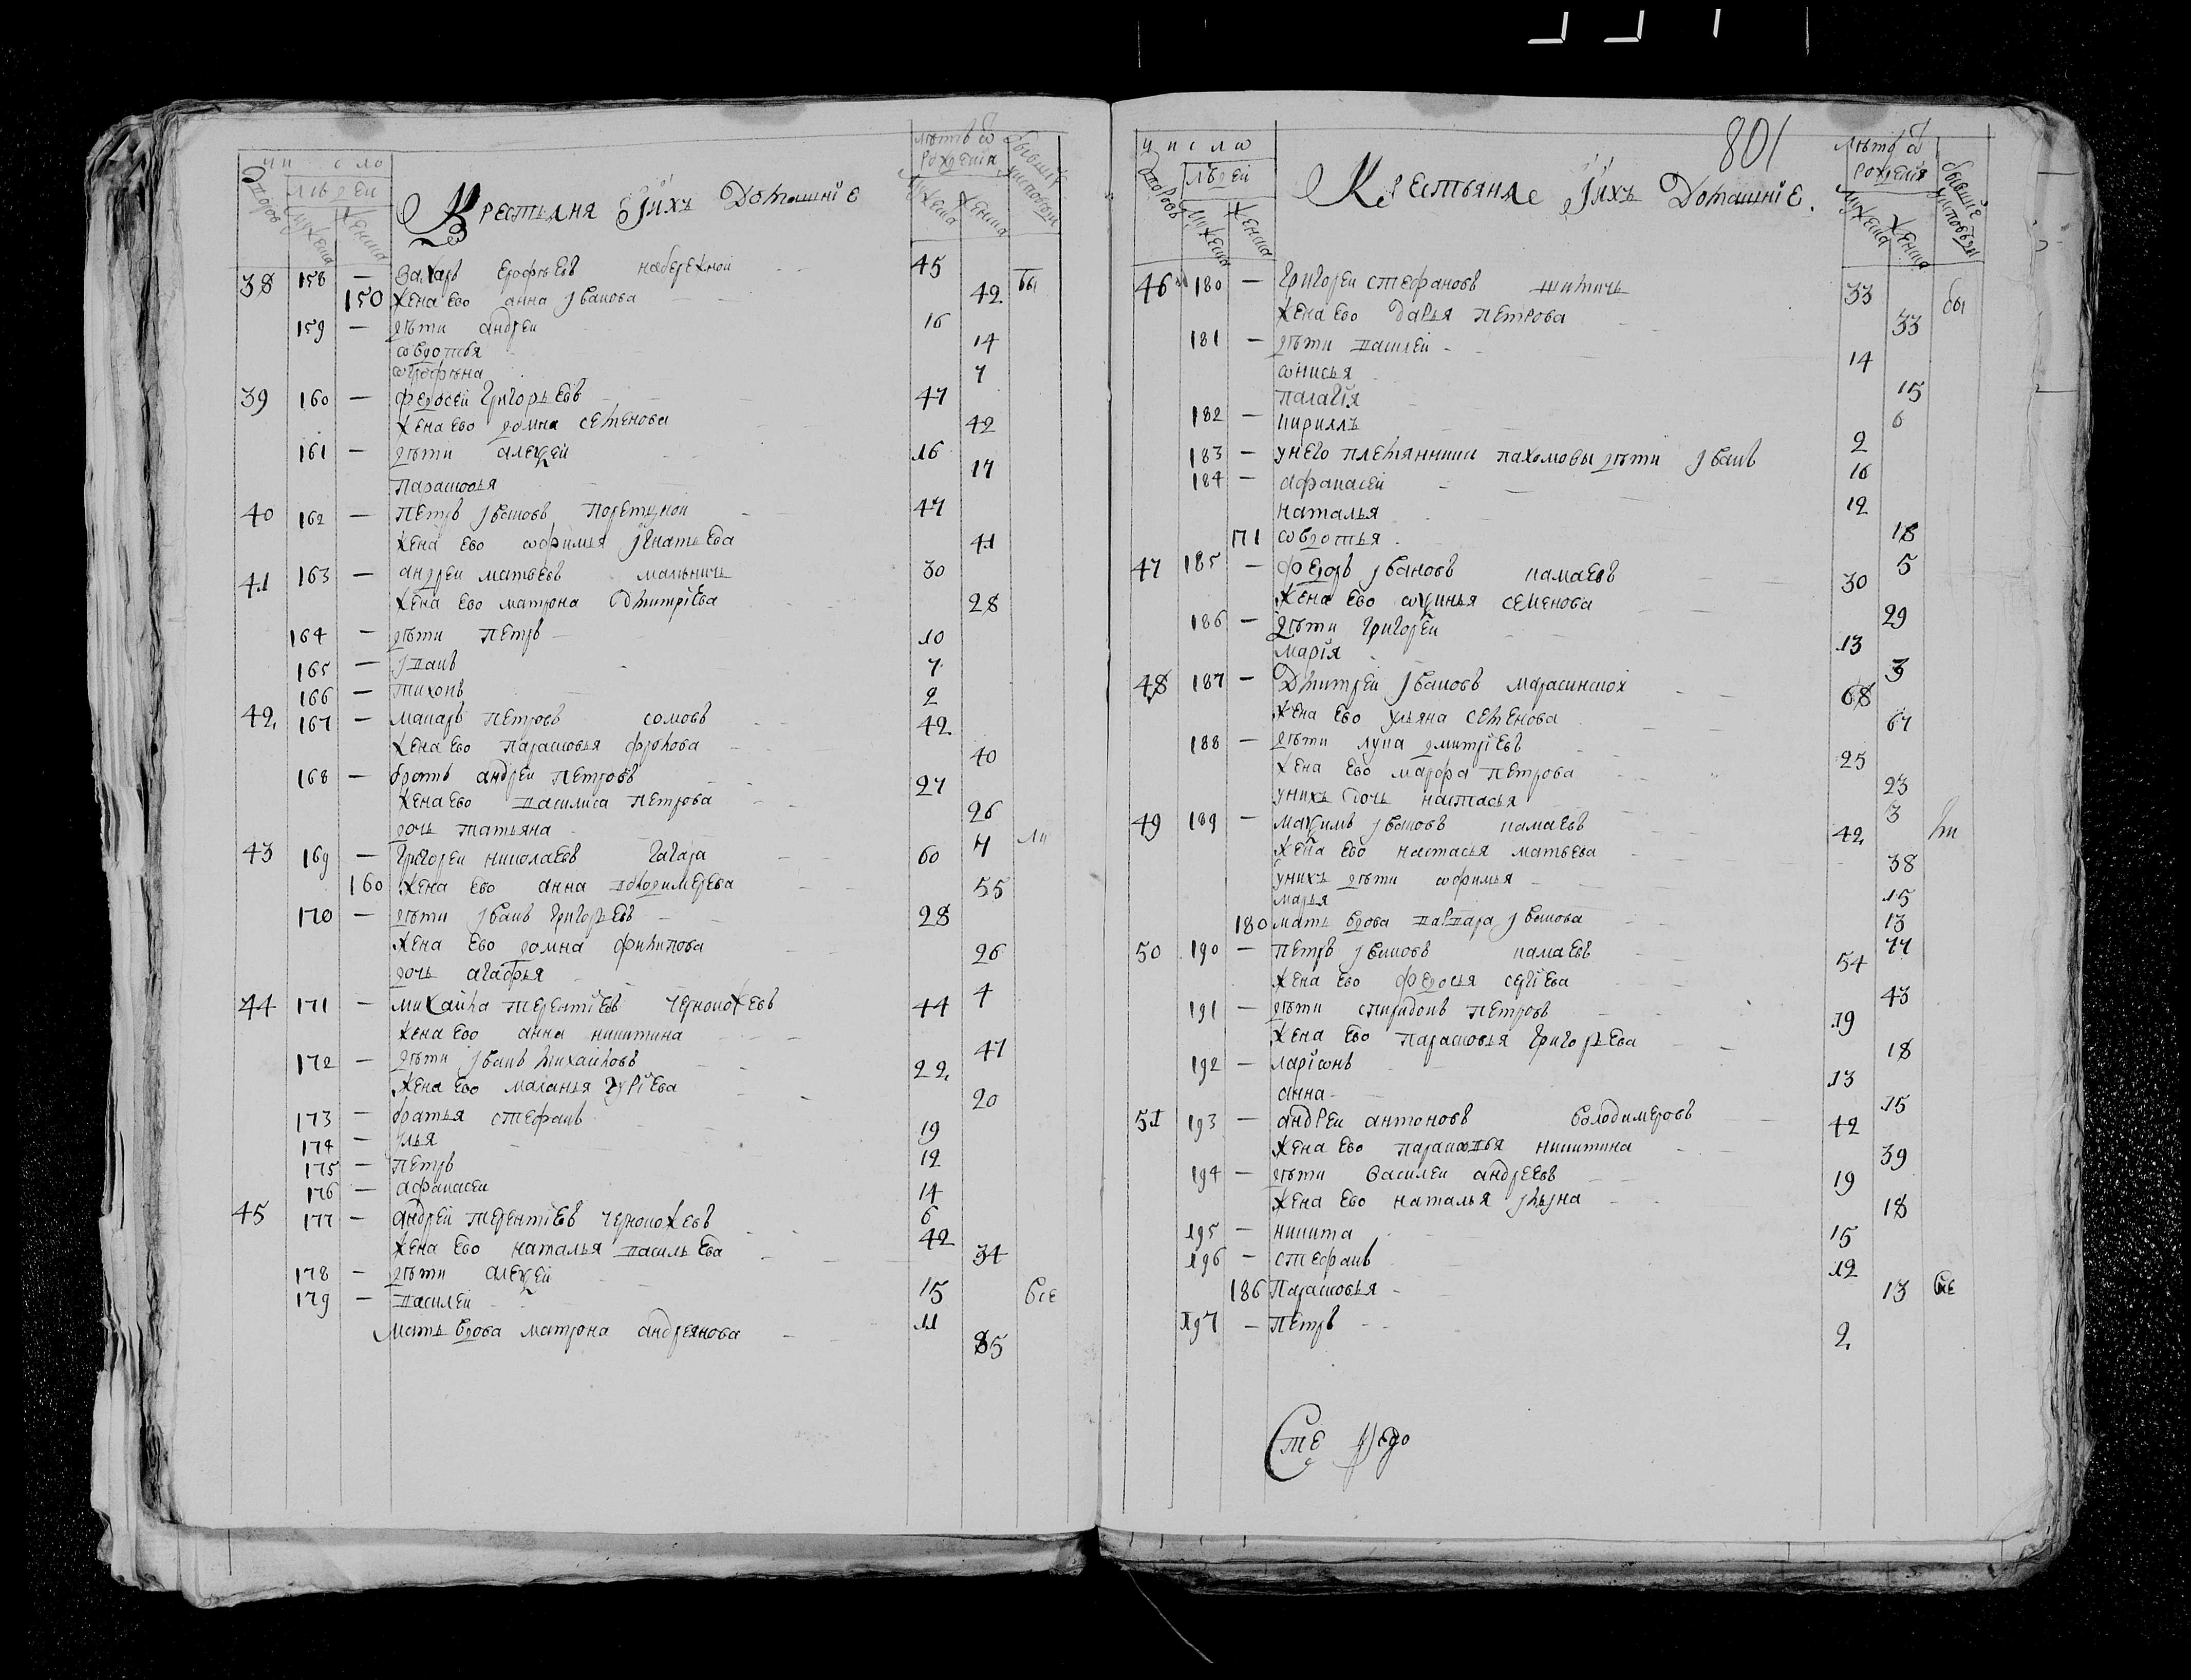 число
дворовъ
людей
мужеска
женска
Крестьяня Іихъ Домашніе
лѣтъ ѿ рожденія
мужеска
женска
бывшіе у исповеди
38 158 — Захаръ Ерофѣевъ набережной 45 бы
150 жена ево анна Іванова 42
159 — дѣти андрей 16
ѡвдотья 14
7
39 160 — федосей Григорьевъ 47
жена ево домна семенова 42
161 — дѣти алеѯей 16
парасковья 17
40 162 — петръ Івановъ 47
жена ево ѡфимья Ігнатьева 41
41 163 — андрей матвевъ 30
жена ево матрона Дмитріева 28
164 — дѣти петръ 10
165 — Іванъ 7
166 — тихонъ 2
42 167 — макаръ петровъ сомовъ 42
жена ево парасковья фролова 40
168 — братъ андрей петровъ 27
жена ево василиса петрова 26
дочь татьяна 4 ли
43 169 — Григорей николаевъ гагара 60
160 жена ево анна володимерева 55
170 — дѣти Іванъ Григорьевъ 28
жена ево домна филипова 26
дочь агафья 4
44 171 — михайла терентіевъ черноножевъ 44
жена ево анна никитина 47
172 — дѣти Іванъ михайловъ 22
жена ево маланья Гурієва 20
173 — братья стефанъ 19
174 — Илья 12
175 — петръ 14
176 — афанасеи 6
45 177 — андрей терентіевъ черноножевъ 42
жена ево наталья васильева 34
178 — дѣти алеѯей 15
179 — василей 11 все
мать вдова матрона андреянова 85
801
число
дворовъ
людей
мужеска
женска
Крестьяне Іихъ Домашніе.
лѣтъ ѿ рожденія
мужеска
женска
бывшіе у исповеди
46 180 — Григореи стефановъ 33 бы
жена ево дарья петрова 33
181 — дѣти василеи 14
ѡнисья 15
палагія 6
182 — кириллъ 2
183 — у него племянники пахомовы дѣти Іванъ 16
184 — афанасеи 12
наталья 18
171 ѡвдотья 5
47 185 — федоръ Івановъ камаевъ 30
жена ево ѡѯинья семенова 29
186 — дѣти григорей 13
марія 3
48 187 — Дмитрей Івановъ 68
жена ево ульяна семенова 67
188 — дѣти лука дмитріевъ 25
жена ево марфа петрова 23
у нихъ дочь настасья 3
49 189 — маѯимъ Івановъ камаевъ 42 ли
жена ево настасья матвева 38
у нихъ дѣти ѡфимья 15
марья 13
180 мать вдова варвара Іванова 77
50 190 — петръ Івановъ камаевъ 54
жена ево федосья сергіева 43
191 — дѣти спиридонъ петровъ 19
жена ево парасковья Григорьева 18
192 — ларіѡнъ 13
анна 15
51 193 — андреи антоновъ володимеровъ 42
жена ево парасковья никитина 39
194 — дѣти василеи андреевъ 19
жена ево наталья 18
195 — никита 15
196 — стефанъ 12
186 Парасковья 13 все
197 — петръ 2